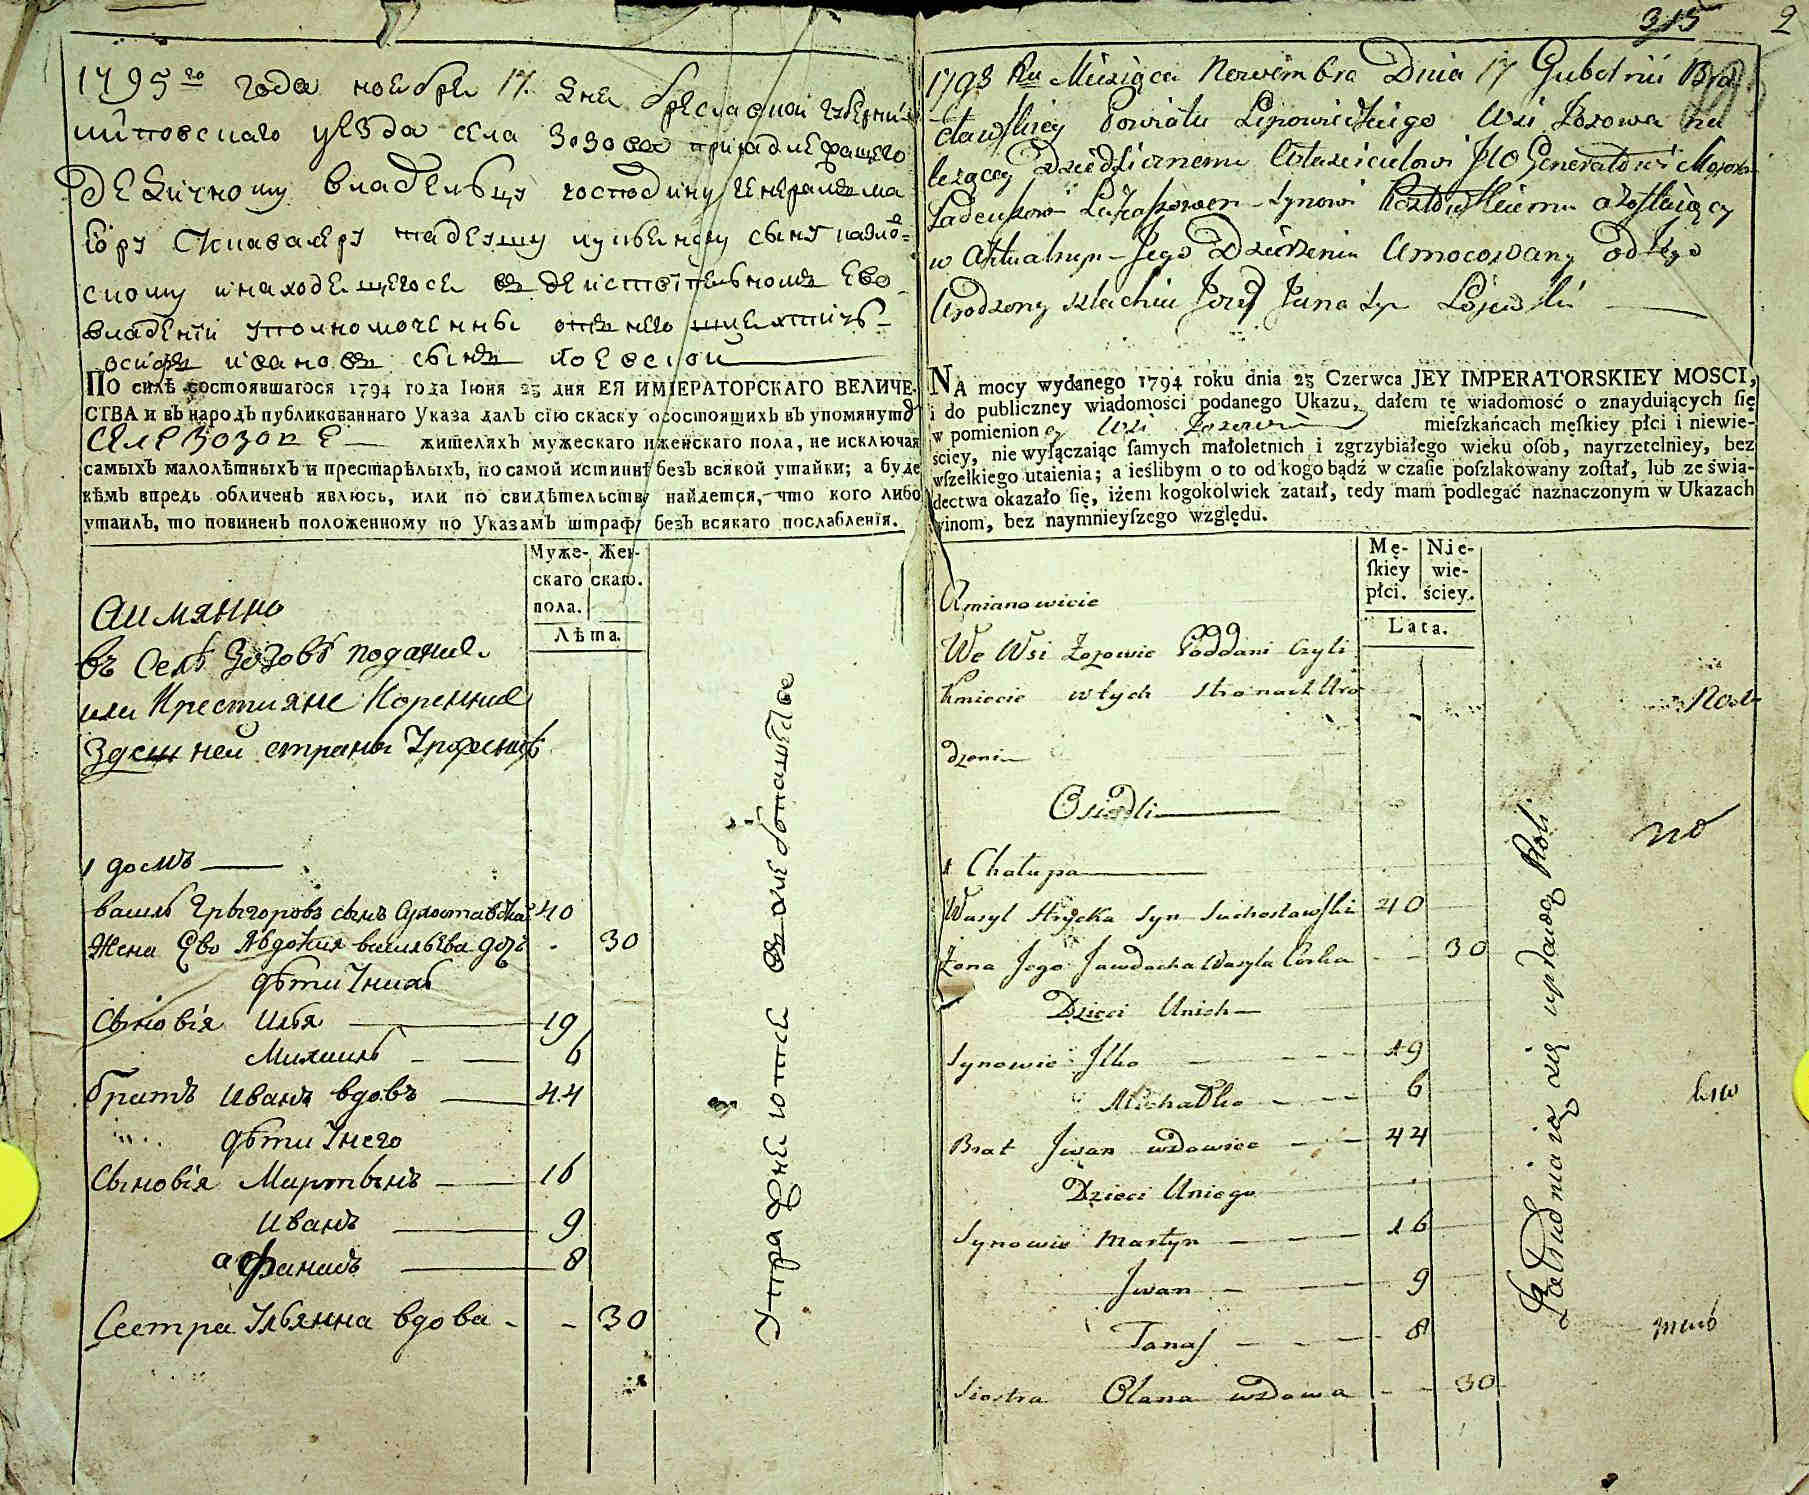 1795го года ноебре 17. дне бреславской губернии
липовецкаго уезда села Зозова принадлежащего
дедичному владельцу господину генералу ма
иору Скавалеру тадеушу сыну козло=
скому инаходещегосе въ действительномъ Его
владении уполномоченны отъ него
осифъ ивановъ сынъ
По силѣ состоявшагося 1794 года Іюня 23 дня ЕЯ ИМПЕРАТОРСКАГО ВЕЛИЧЕ-
СТВА и въ народъ публикованнаго Указа далъ сію скаску о состоящихъ въ упомянуто
селе Зозове жителяхъ мужескаго и женскаго пола, не исключая
самыхъ малолѣтныхъ и престарѣлыхъ, по самой истиннѣ безъ всякой утайки; а буде
кѣмъ впредь обличенъ явлюсь, или по свидѣтельству найдется, что кого либо
утаилъ, то повиненъ положенному по Указамъ штрафу безъ всякаго послабленія.
Муже- Жен-
скаго скаго.
пола.
Лѣта.
Аимянно
въ Селѣ Зозовѣ подание
или Крестияне Коренние
здешней страны
1 домъ
василь Грыгоровъ сынъ Сухоставска 40
Жена Ево Явдокия васильева дочь - 30
Дѣти Унихъ
Сыновія Илья 19
Михаилъ 6
братъ Иванъ вдовъ 44
дѣти Унего
Сыновія Мартынъ 16
Иванъ 9
афанасъ 8
Сестра Ульянна вдова - - 30
Упражнеютсе въ хлебопашестве
315 2
1795 Ru Miesiąca Nowembra Dnia 17 Gubernii Bra
cławskiey Powiatu Lipowieckiego Wsi Zozowa na
leżącey Dziedzicznemu Właścicielowi JW Generałowi Majorowi
Tadeuszowi Łukaszowem Synowi Kozłowskiemu a zostaiący
w Aktualnym Jego Dzierżeniu Umocowany od Jego
Urodzony szlachcic Jozef Jana Syn Łojewski
NA mocy wydanego 1794 roku dnia 23 Czerwca JEY IMPERATORSKIEY MOSCI,
i do publiczney wiadomości podanego Ukazu, dałem tę wiadomość o znayduiących ſię
w pomienioney Wsi Zozowie mieſzkańcach męſkiey płci i niewie-
ściey, nie wyſączaiąc ſamych małoletnich i zgrzybiałego wieku oſob, nayrzetelniey, bez
wſzelkiego utaienia; a ieślibym o to od kogo bądź w czaſie poſzlakowany zoſtał, lub ze świa-
dectwa okazało ſię, iżem kogokolwiek zataił, tedy mam podlegać naznaczonym w Ukazach
winom, bez naymnieyſzego względu.
Mę- Nie-
ſkiey wie-
płci. ściey.
Lata.
Amianowicie
We Wsi Zozowie Poddani Czyli
kmiecie w tych stronach Uro
dzeni
Osiedli
1 Chałupa
Wasyl Hrycka Syn Suchostawski 40
Żona Jego Jawdocha Wasyla Corka - - 30
Dzieci Unich
Synowie Ilko 19
Michałko 6
Brat Jwan wdowiec 44
Dzieci Uniego
Synowie Martyn 16
Jwan 9
Tanas 8
Siostra Olana wdowa - - 30
Zatrudniaią się uprawą Roli
но